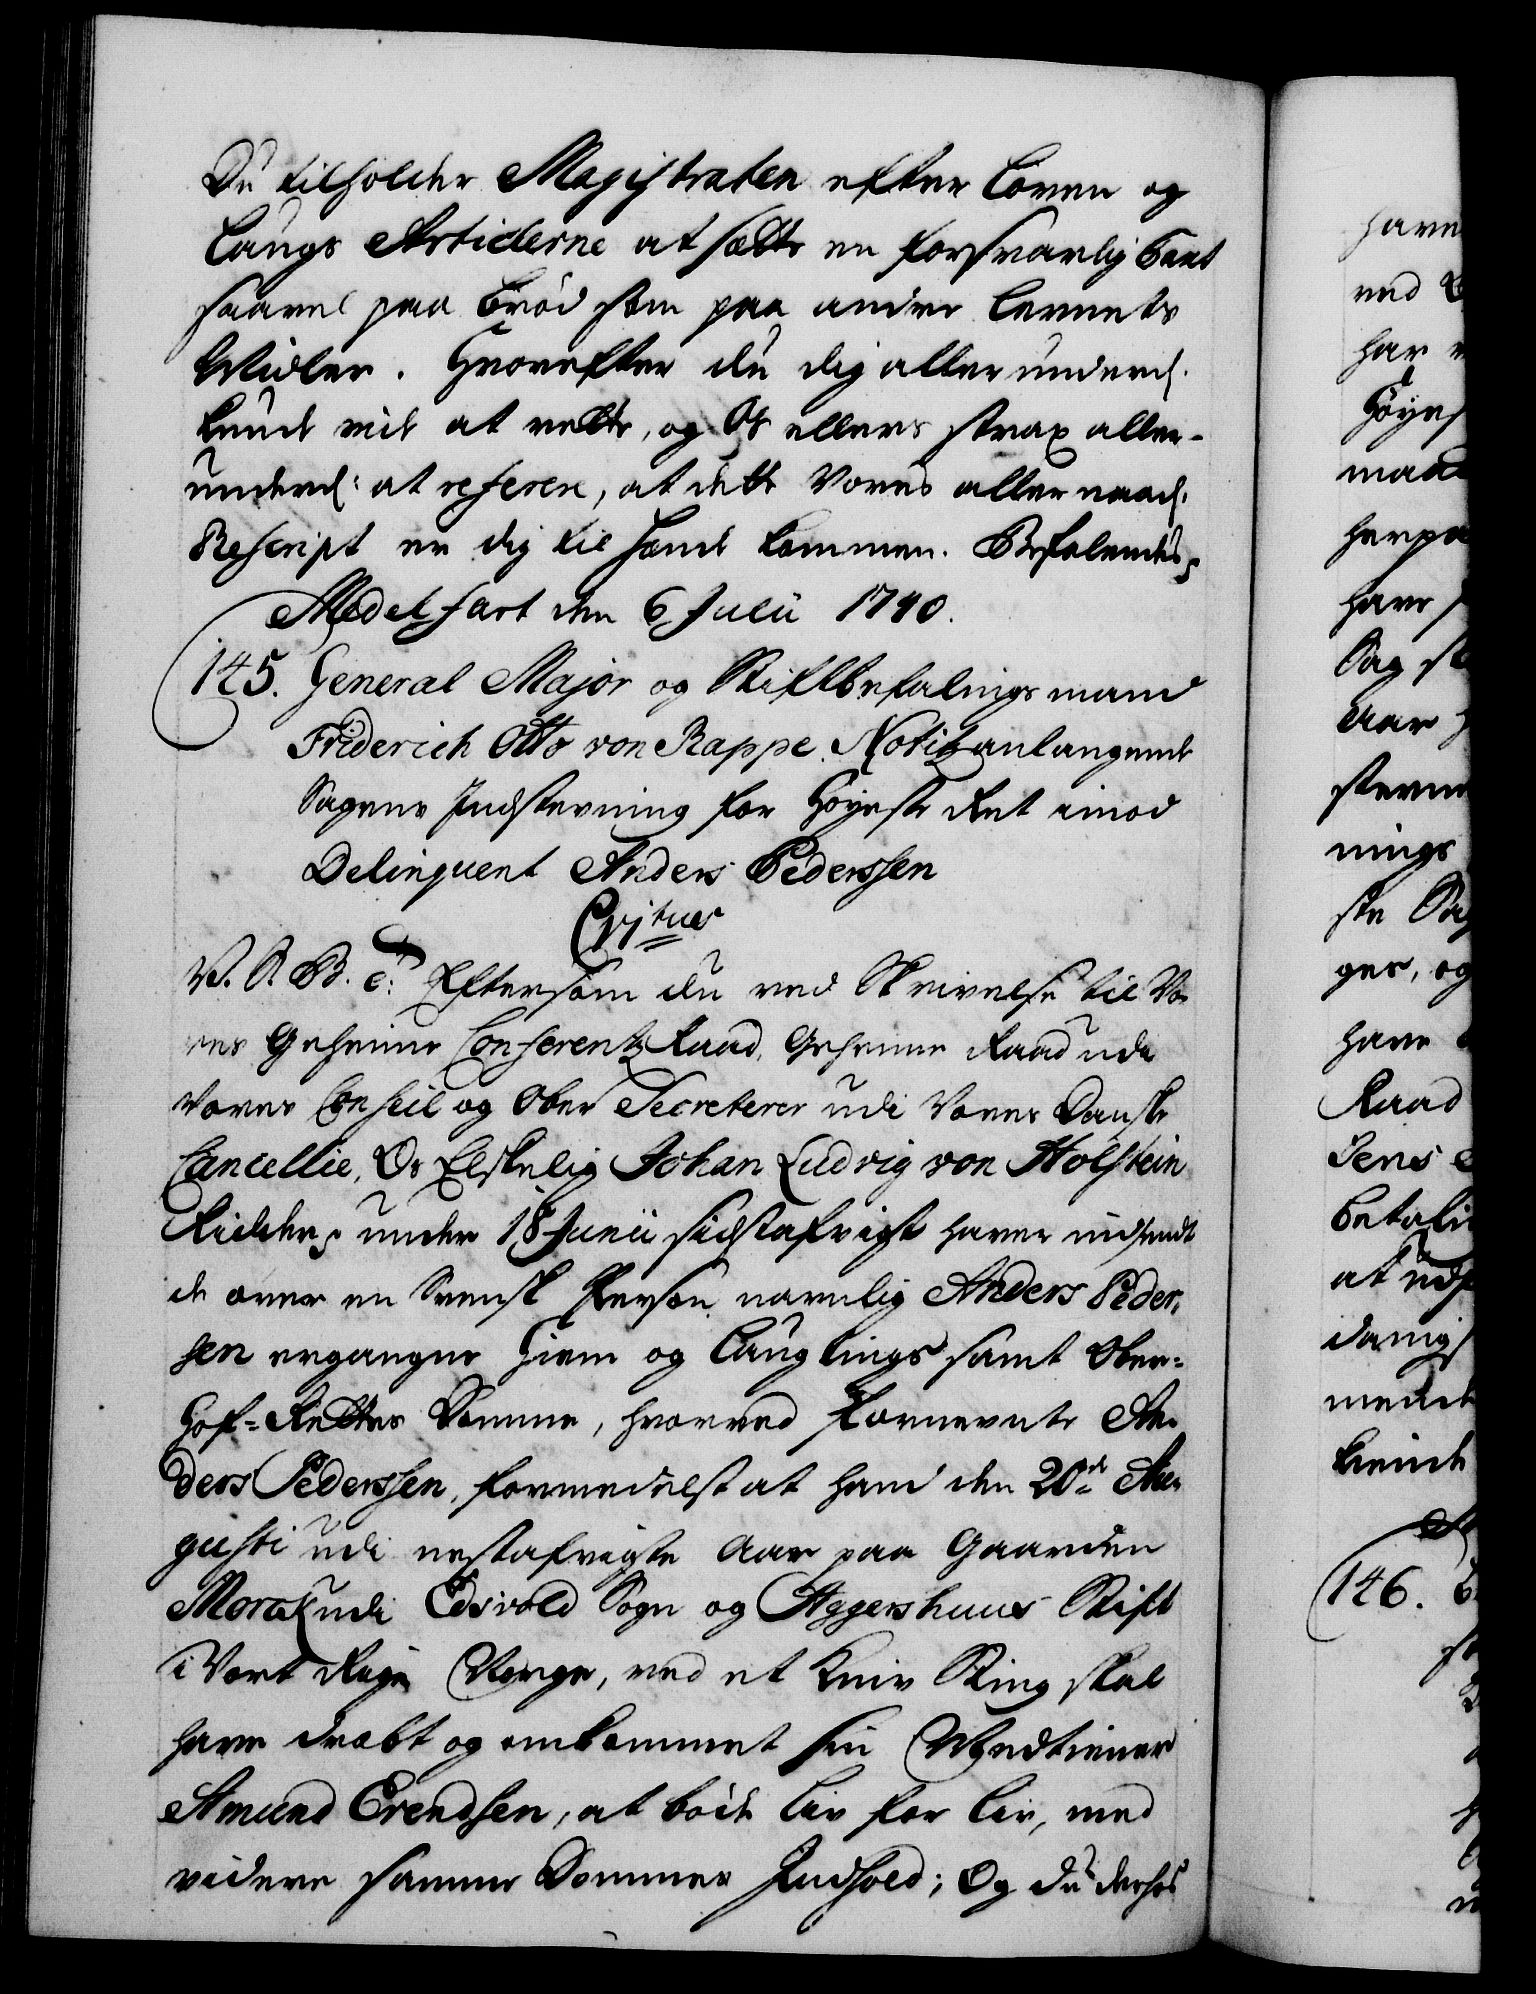 Du tilholder Magistraten efter Loven og
Laugs Articlerne at sætte en forsvarlig Taxt
saavel paa Brød som paa andre Levnets
Midler. Hvorefter du dig allerunderd.
kund vide at rette, og Os ellers strax aller-
underd: at referere, at dette Vores allernaad.
Rescript er dig til Hænde kommen. Befalendes
Medelfart den 6 Julii 1740.
145. General Major og Stiftbefalingsmand
Friderich Otto von Rappe Notitz anlangende
Sagens Indstevning for Høyeste Ret imod
Delinquent Anders Pederssen
V. S. B. etc: Eftersom du ved Skrivelse til Vo-
res Geheime Conferentz Raad, Geheime Raad udi
Vores Conseil og Ober Secreterer udi Vores Danske
Cancellie, Os Elskelig Johan Ludvig von Holstein
Ridder, under 18 Junii sidstafvigt haver indsendt
de over en Svensk Person navnlig Anders Peder-
sen ergangne Hiem og Laugtings samt Ober-
Hof-Rettes Domme, hvorved fornevnte An-
ders Pederssen, formedelst at hand den 20de Au-
gusti udi nestafvigte Aar paa Gaarden
Morak udi Edsvold Sogn og Aggershuus Stift
i Vort Rige Norge, ved et Kniv Sting skal
have dræbt og omkommet sin Medtiener
Amund Erendsen, at bøde Liv for Liv, med
videre samme Dommes Indhold; Og du derhos
146.